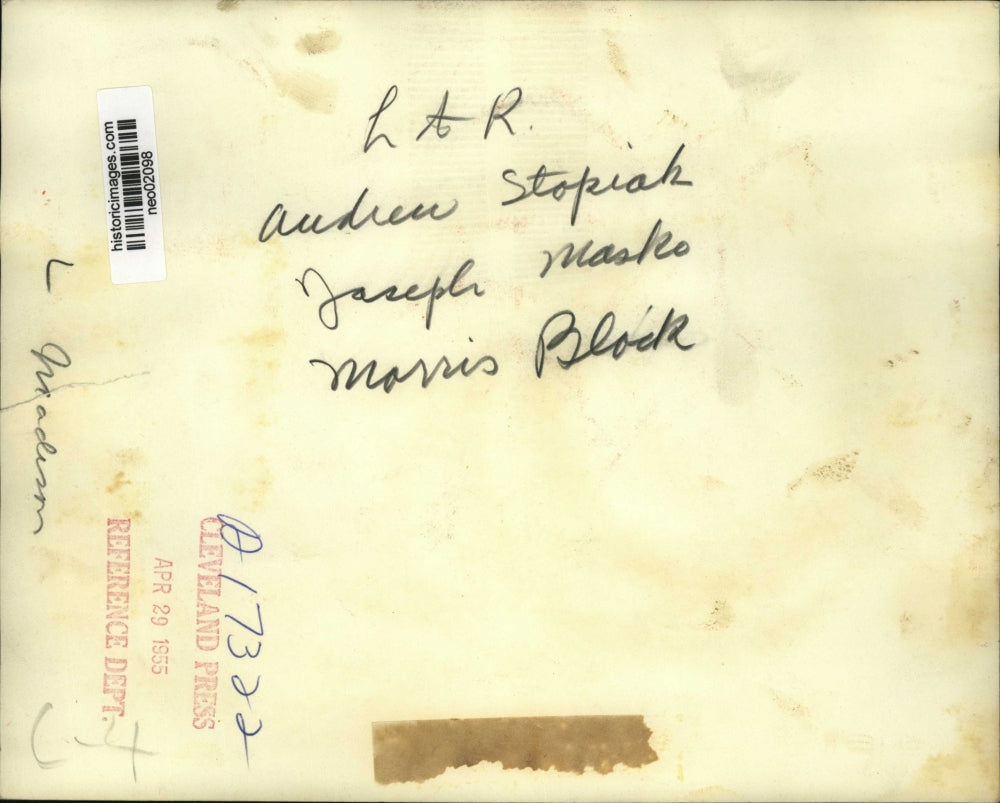 L to R.
Andrew Stopiak
Joseph Masko
Morris Block
historicimages.com
neo02098
L Madison
CLEVELAND PRESS
APR 29 1955
REFERENCE DEPT.